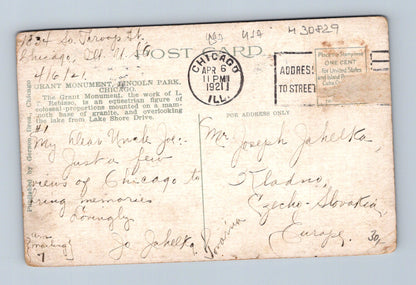 1834 So. Troop St.
Chicago, Ill. U.S.
4/6/21.
POST CARD.
H 30829
CHICAGO
APR 6
11 PM
1921
ILL.
ADDRESS
TO STREET
Place the Stamp here
ONE CENT
for United States
and Island Possessions
Cuba
GRANT MONUMENT, LINCOLN PARK,
CHICAGO.
The Grant Monument, the work of L.
Rebisso, is an equestrian figure of
colossal proportions mounted on a mam-
moth base of granite, and overlooking
the lake from Lake Shore Drive.
FOR ADDRESS ONLY
#1
My Dear Uncle Joe:-
Just a few
views of Chicago to
bring memories
Lovingly
Jo Jahelka
7
Mr. Joseph Jahelka,
Kladno,
Czecho-Slovakia,
Europe.
30,-